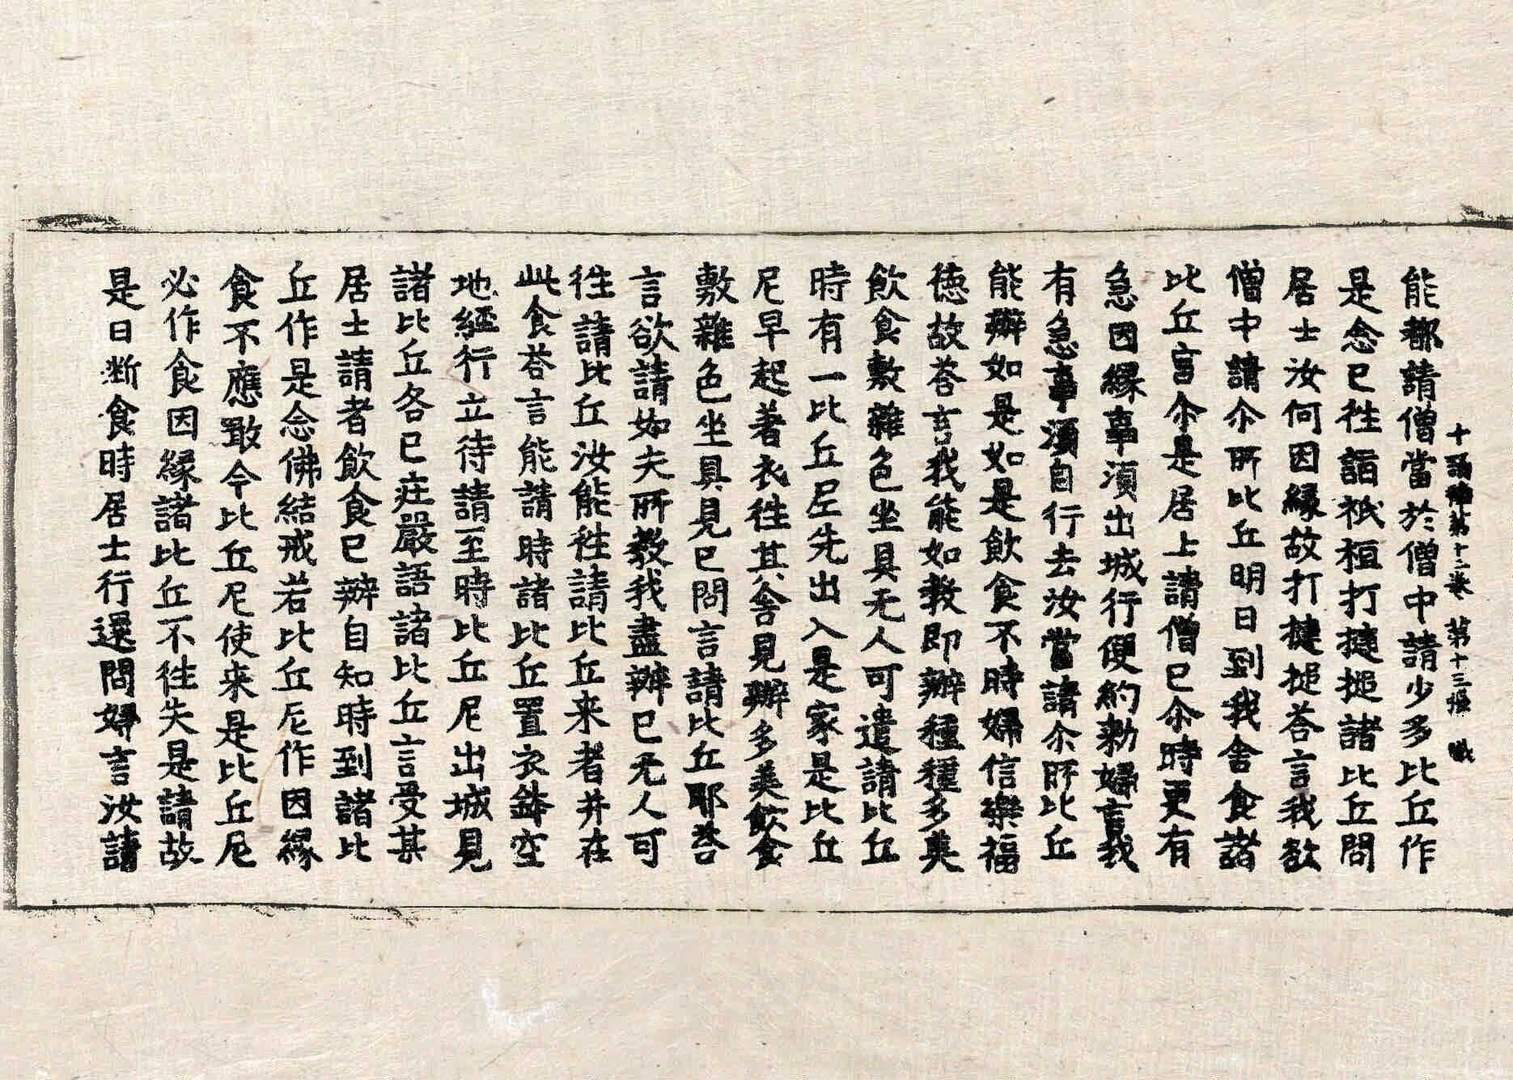 十誦律第十二卷 第十三張 職
能都請僧當於僧中請少多比丘作
是念已往詣祇桓打揵搥諸比丘問
居士汝何因緣故打揵搥荅言我欲
僧中請尒所比丘明日到我舍食諸
比丘言尒是居士請僧已尒時更有
急因緣事湏出城行便約勑婦言我
有急事湏自行去汝當請尒所比丘
能辦如是如是飲食不時婦信樂福
德故荅言我能如教即辦種種多美
飲食敷雜色坐具无人可遣請比丘
時有一比丘尼先出入是家是比丘
尼早起著衣往其舍見辦多美飲食
敷雜色坐具見已問言請比丘耶荅
言欲請如夫所教我盡辦已无人可
往請比丘汝能往請比丘来者并在
此食荅言能請時諸比丘置衣鉢空
地經行立待請至時比丘尼出城見
諸比丘各已庄嚴語諸比丘言受某
居士請者飲食已辦自知時到諸比
丘作是念佛結戒若比丘尼作因緣
食不應噉今比丘尼使来是比丘尼
必作食因緣諸比丘不往失是請故
是日断食時居士行還問婦言汝請